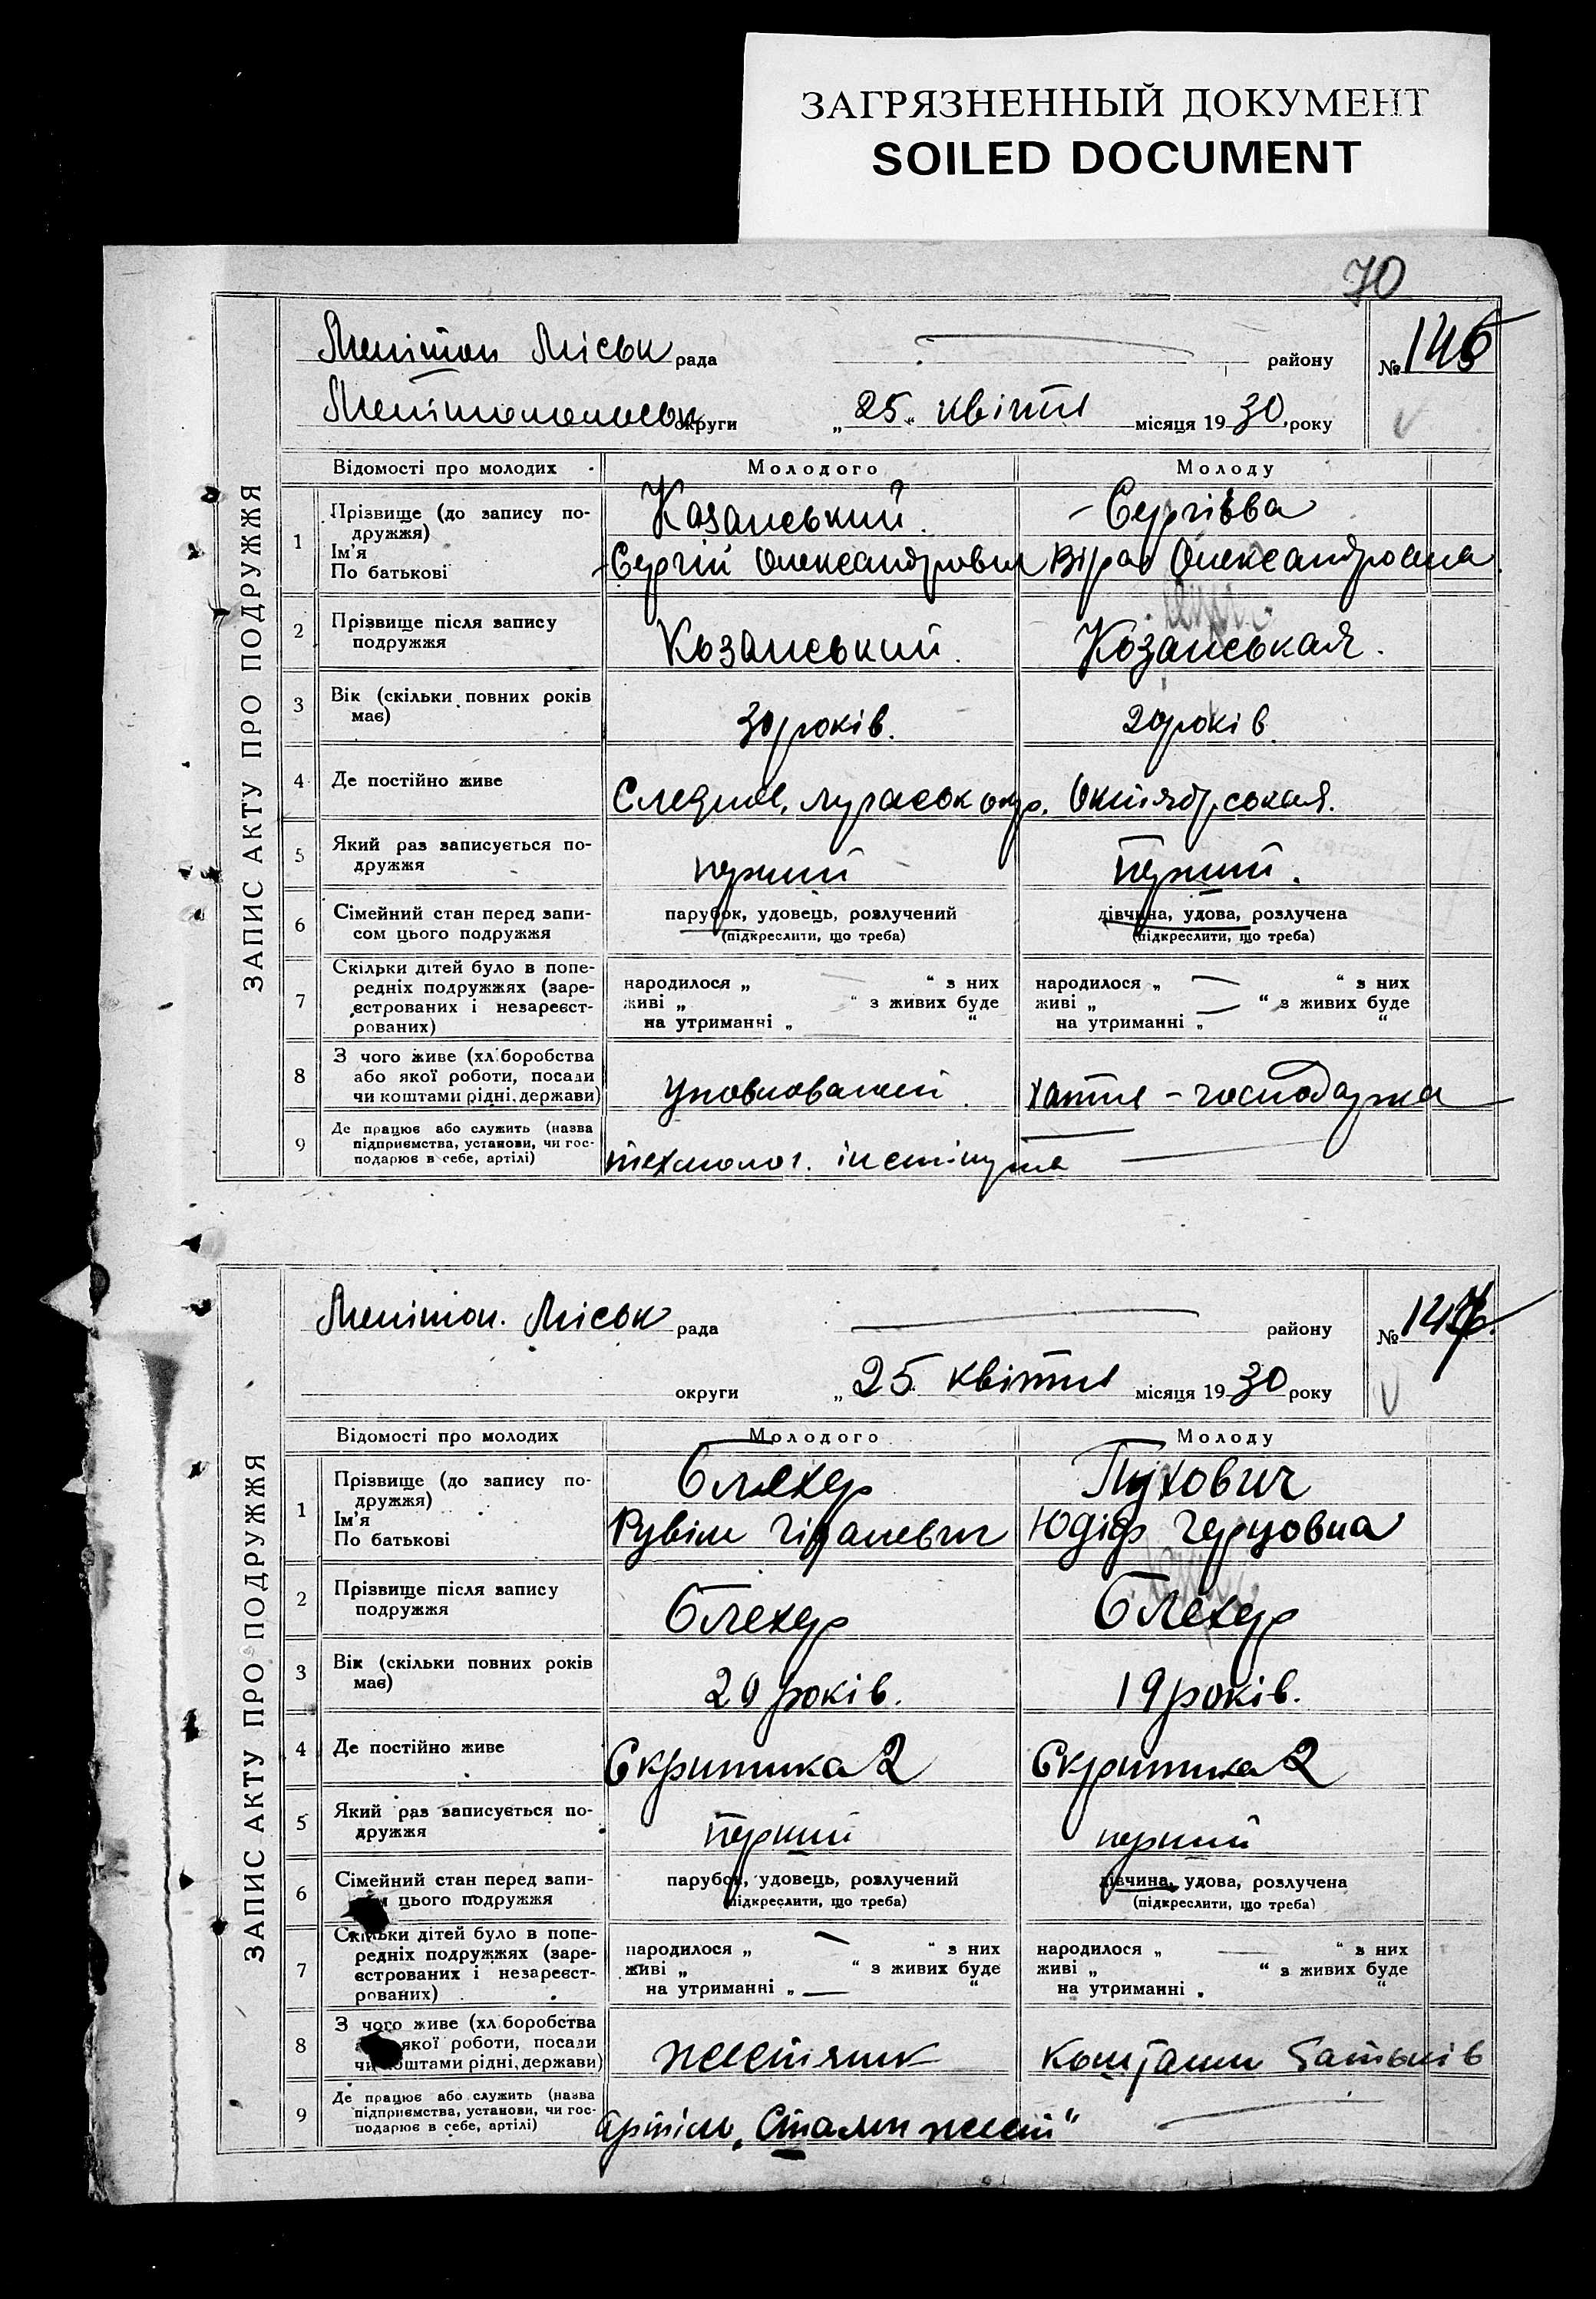 ЗАГРЯЗНЕННЫЙ ДОКУМЕНТ
SOILED DOCUMENT
70
ЗАПИС АКТУ ПРО ПОДРУЖЖЯ
Мелітоп Міськ рада району № 146
округи „25“ квітня місяця 1930 року
Відомості про молодих Молодого Молоду
1 Прізвище (до запису по-
дружжя) Казанський. Сергієва
Ім'я
По батькові Сергій Олександрович Віра Олександровна
2 Прізвище після запису
подружжя Козанський. Козанськая.
3 Вік (скільки повних років
має) 30 років. 20 років.
4 Де постійно живе окр. Октябрськая.
5 Який раз записується по-
дружжя перший перший.
6 Сімейний стан перед запи-
сом цього подружжя
парубок, удовець, розлучений дівчина, удова, розлучена
(підкреслити, що треба) (підкреслити, що треба)
7 Скільки дітей було в попе-
редніх подружжях (заре-
єстрованих і незареєст-
рованих)
народилося „ “ з них народилося „ “ з них
живі „ “ з живих буде живі „ “ з живих буде
на утриманні „ “ на утриманні „ “
8 З чого живе (хліборобства
або якої роботи, посади
чи коштами рідні, держави) хатня - господарка
9 Де працює або служить (назва
підприємства, установи, чи гос-
подарює в себе, артілі) технолог. інстітута
ЗАПИС АКТУ ПРО ПОДРУЖЖЯ
Мелітоп. Міськ рада району № 147
округи „ 25 квітня місяця 1930 року
Відомості про молодих Молодого Молоду
1 Прізвище (до запису по-
дружжя) Блехер Пухович
Ім'я
По батькові Рувім Юдіф Герцовна
2 Прізвище після запису
подружжя Блехер Блехер
3 Вік (скільки повних років
має) 20 років. 19 років.
4 Де постійно живе Скрипника 2 Скрипника 2
5 Який раз записується по-
дружжя перший перший
6 Сімейний стан перед запи-
цього подружжя
парубок, удовець, розлучений дівчина, удова, розлучена
(підкреслити, що треба) (підкреслити, що треба)
7 Скільки дітей було в попе-
редніх подружжях (заре-
єстрованих і незареєст-
рованих)
народилося „ “ з них народилося „ “ з них
живі „ “ з живих буде живі „ “ з живих буде
на утриманні „ “ на утриманні „ “
8 З чого живе (хліборобства
якої роботи, посади
чи коштами рідні, держави) жестяник коштами батьків
9 Де працює або служить (назва
підприємства, установи, чи гос-
подарює в себе, артілі) артіль